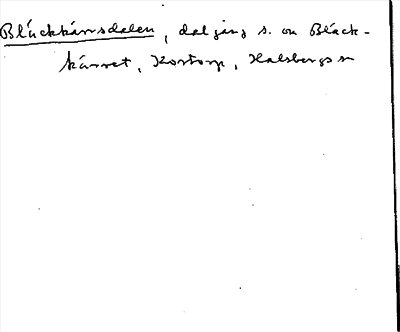 Bläckkärrsdalen, dalgång s. om Bläck-
kärret, Kortorp, Halsbergs sn